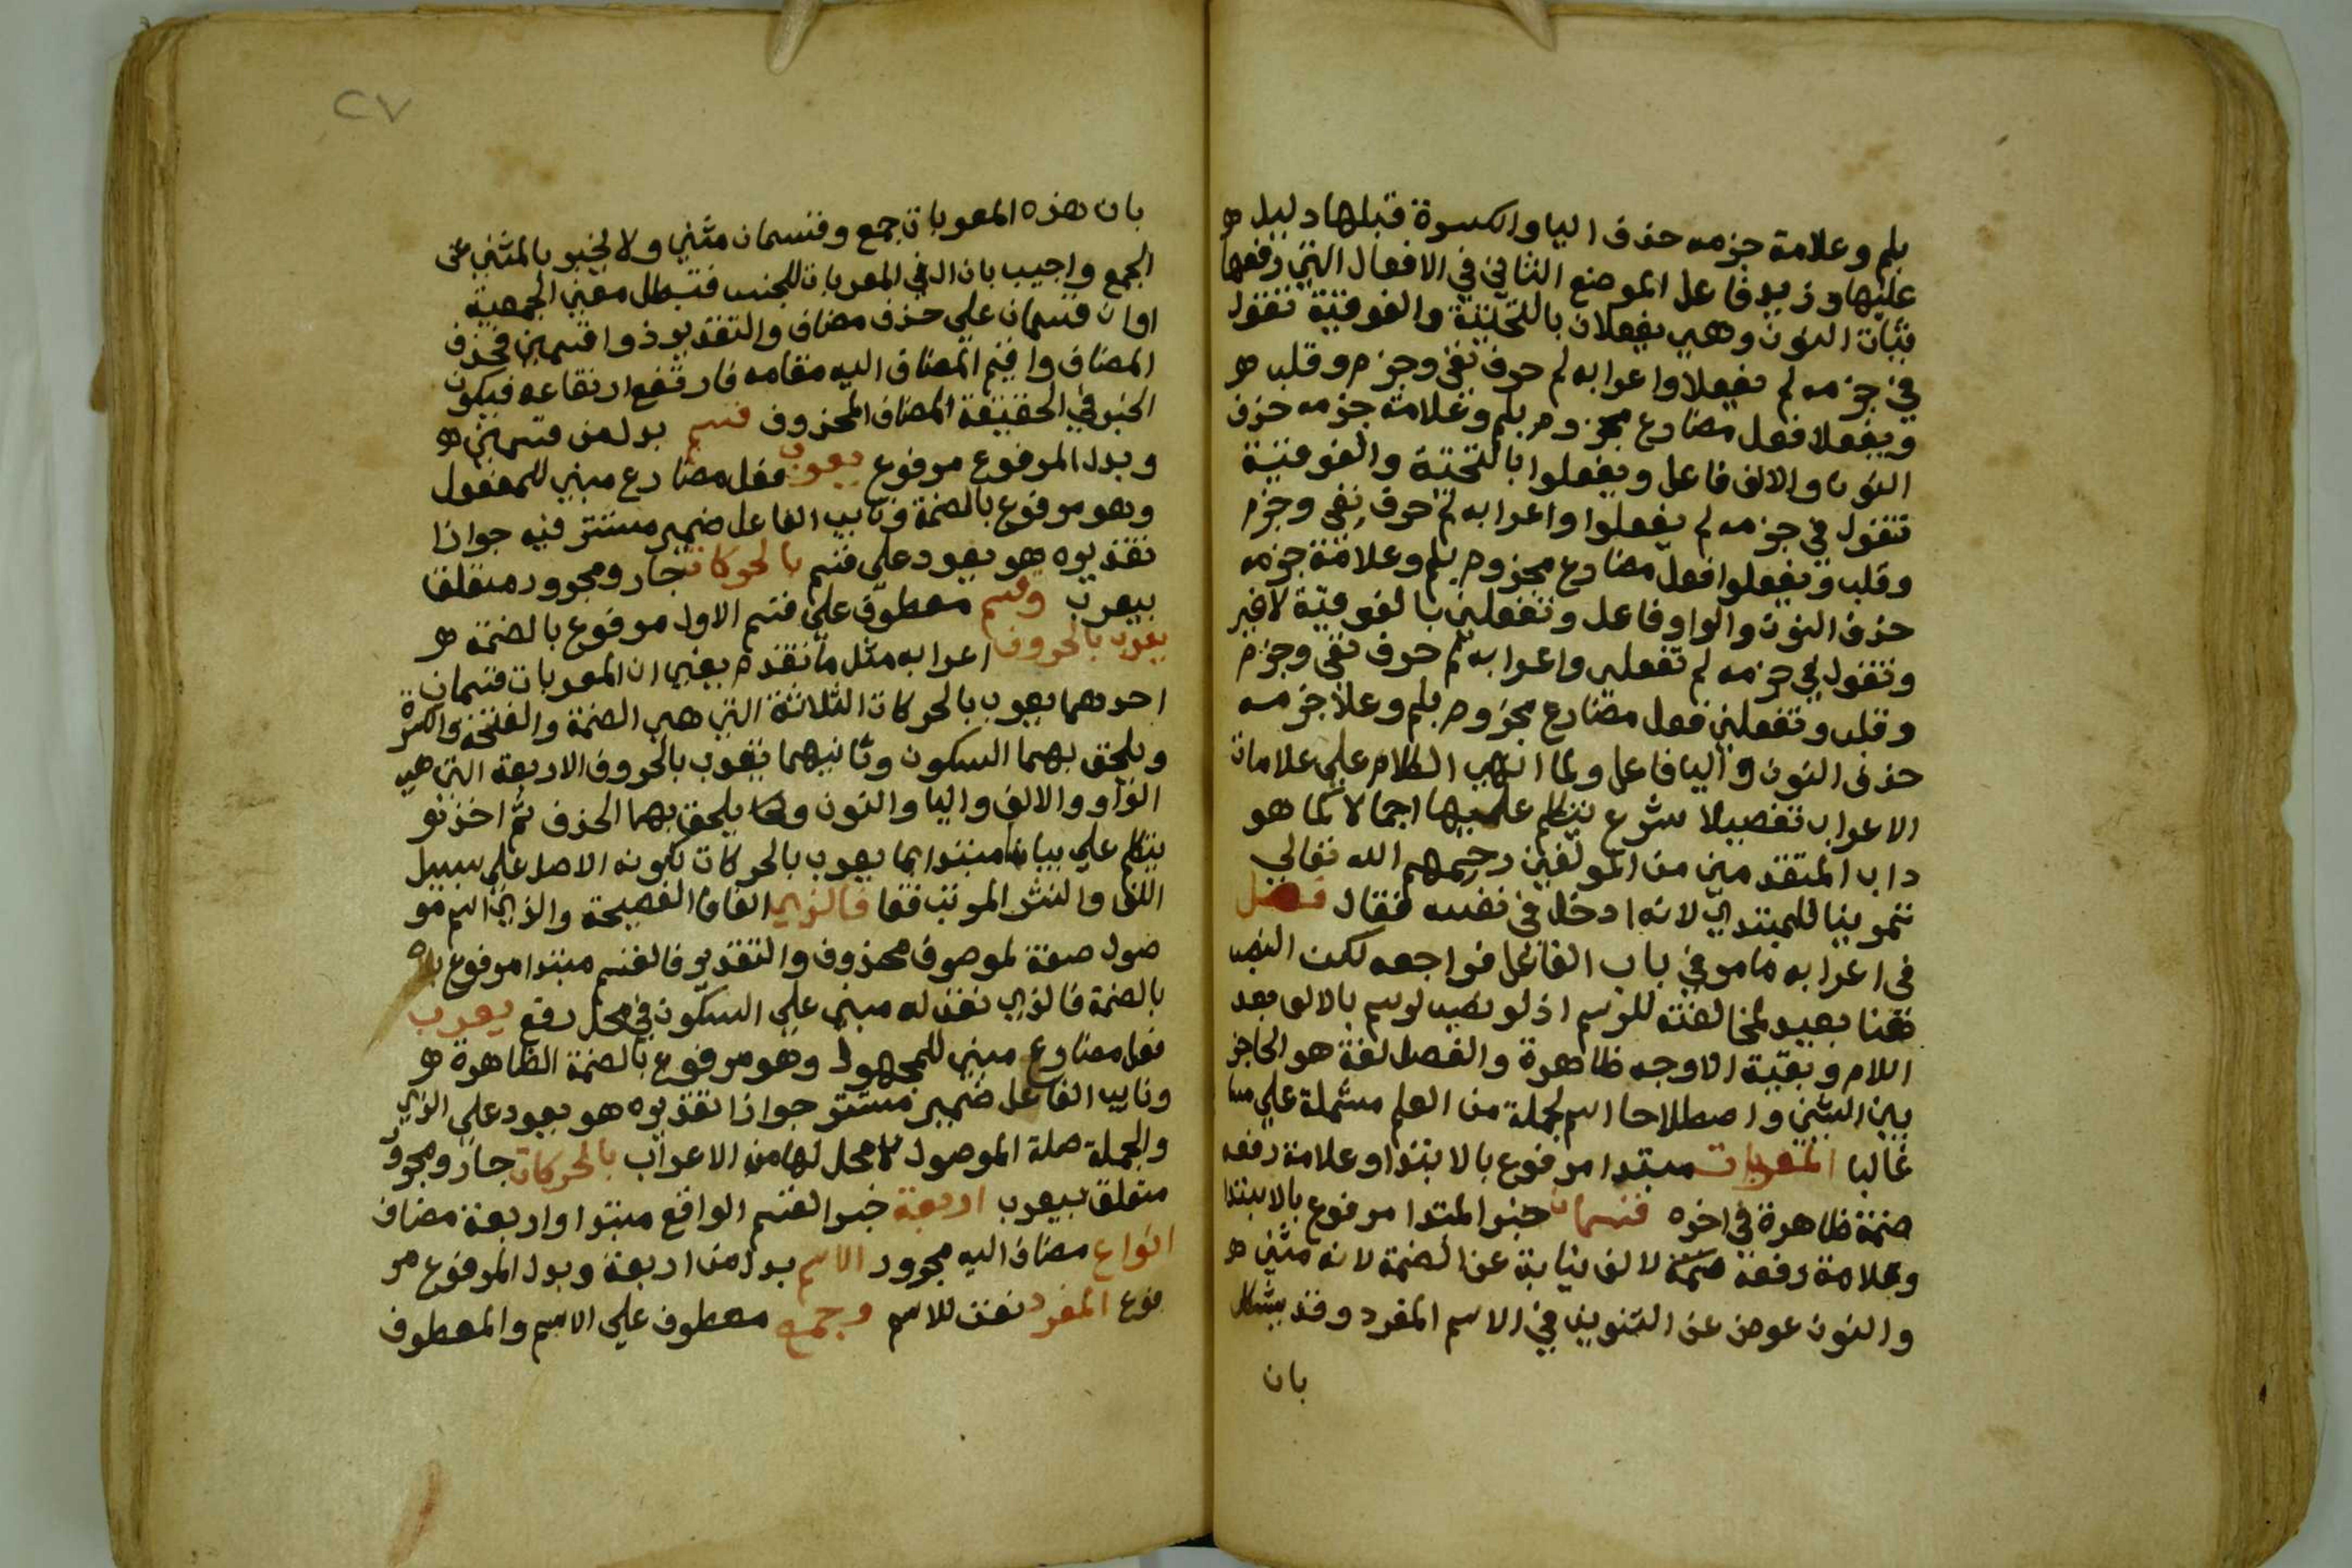 بلم وعلامة جزمه حذف اليا والكسرة قبلها دليل
عليها وزيد فاعل الموضع الثاني في الافعال التي رفعها
بثبات النون وهي يفعلان بالتحتية والفوقية تقول
في جزمه لم يفعلا واعرابه لم حرف نفي وجزم وقلب
ويفعلا فعل مضارع مجزوم بلم وعلامة جزمه حذف
النون والالف فاعل ويفعلوا بالتحتية والفوقية
تقول في جزمه لم يفعلوا واعرابه لم حرف نفي وجزم
وقلب ويفعلوا فعل مضارع مجزوم بلم وعلامة جزمه
حذف النون والواو فاعل وتفعلين بالفوقية لاغير
وتقول في جزمه لم تفعلى واعرابه لم حرف نفي وجزم
وقلب وتفعلين فعل مضارع مجزوم بلم وعلا جزمه
حذف النون واليا فاعل ولما انهي الكلام علي علامات
الاعراب تفصيلا شرع يتكلم عليها اجمالا كما هو
داب المتقدمين من المولفين رحمهم الله تعالي
تمرينا للمبتدي لانه ادخل في نفسه فقال فصل
في اعرابه ما مر في باب الفاعل فراجعه لكن النصب
هنا بعيد لمخالفته للرسم اذ لو نصب لرسم بالالف بعد
اللام وبقية الاوجه ظاهرة والفصل لغة هو الحاجز
بين الشئين واصطلاحا اسم لجملة من العلم مشتملة علي مسا
غالبا المعربات مبتدا مرفوع بالابتدا وعلامة رفعه
ضمة ظاهرة في اخره قسمان خبر المتدا مرفوع بالابتدا
وعلامة رفعه ضمة لالف نيابة عن الضمة لانه مثني
والنون عوض عن التنوين في الاسم المفرد وقد يشكل
بان
٢٧
بان هذه المعربات جمع وقسمان مثني ولا يخبر بالمثني عن
الجمع واجيب بان ال في المعربات للجنس فتبطل معني الجمعية
اوان قسمان علي حذف مضاف والتقدير ذوا قسمين فحذف
المضاف واقيم المضاف اليه مقامه فارتفع ارتفاعه فيكون
الخبر في الحقيقة المضاف المحذوف قسم بدل من قسمين
وبدل المرفوع مرفوع يعرب فعل مضارع مبني للمفعول
وهو مرفوع بالضمة ونايب الفاعل ضمير مستتر فيه جوازا
تقديره هو يعود علي قسم بالحركات جار ومجرور متعلق
بيعرب وقسم معطوف علي قسم الاول مرفوع بالضمة
يعرب بالحروف اعرابه مثل ما تقدم يعني ان المعربات قسمان
احدهما يعرب بالحركات الثلاثة التي هي الضمة والفتحة والكسرة
ويلحق بهما السكون وثانيهما يعرب بالحروف الاربعة التي هي
الواو والالف واليا والنون يلحق بهما الحذف ثم اخذ
يتكلم علي بيان مبتدا بما يعرب بالحركات لكونه الاصل علي سبيل
اللف والنشر المرتب فقا فالذي الفا فا الفصيحة والذي اسم مو
صول صفة لموصوف محذوف والتقدير فالقسم مبتدا مرفوع
بالضمة فالذي نعت له مبني علي السكون في محل رفع يعرب
فعل مضارع مبني للمجهول وهو مرفوع بالضمة الظاهرة
ونايب الفاعل ضمير مستتر جوازا تقديره هو يعود علي الذي
والجملة صلة الموصول لا محل لها من الاعراب بالحركات جار ومجرور
متعلق بيعرب اربعة خبر القسم الواقع مبتدا واربعة مضاف
انواع مضاف اليه مجرور الاسم بدل من اربعة وبدل المرفوع مر
فوع المفرد نعت للاسم وجمع معطوف علي الاسم والمعطوف